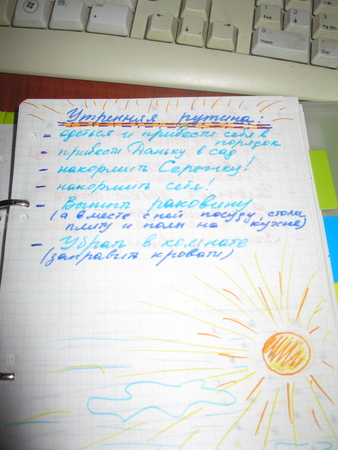 Утренняя рутина:
- одеться и привести себя в
порядок
- привести Даньку в сад
- накормить Сережку!
- накормить себя!
- Вымыть раковину
(а вместе с ней посуду, столы,
плиту и полы на кухне)
- Убрать в комнате
(заправить кровати)